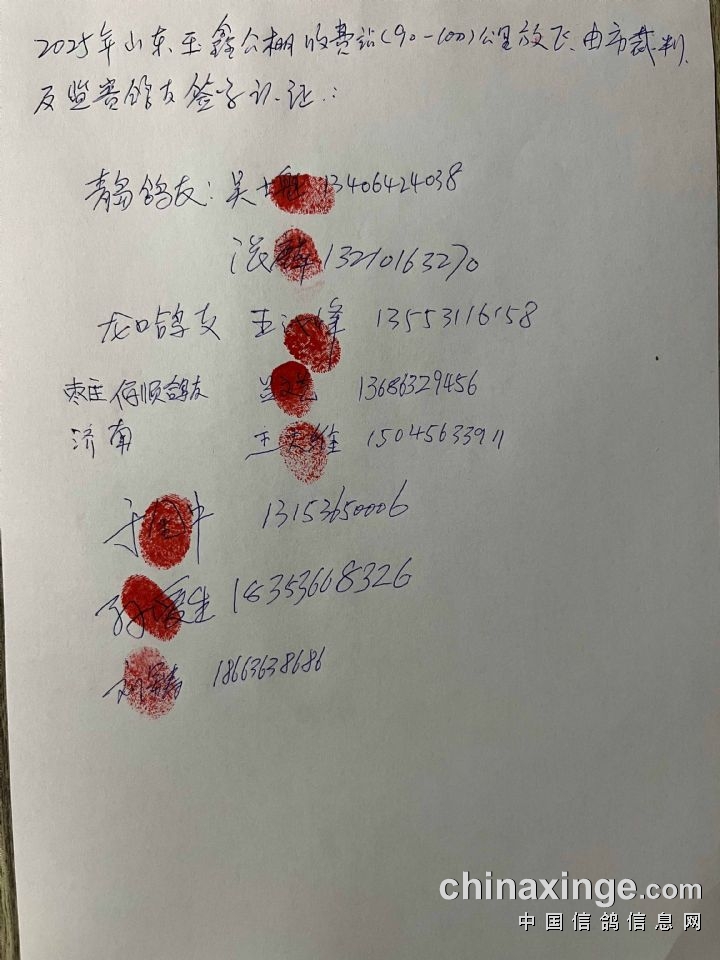 2025年山东玉鑫公棚收费站(90-100)公里放飞.由市裁判.
及监赛鸽友签字认证:
青岛鸽友: 吴 13406424038
13210163270
龙口鸽友 王 峰 13553116158
枣庄保顺鸽友 13686329456
济南 王 维 15045633911
于 中 13153650006
孙爱生 18353608326
刘 涛 18663638686
chinaxinge.com
中国信鸽信息网